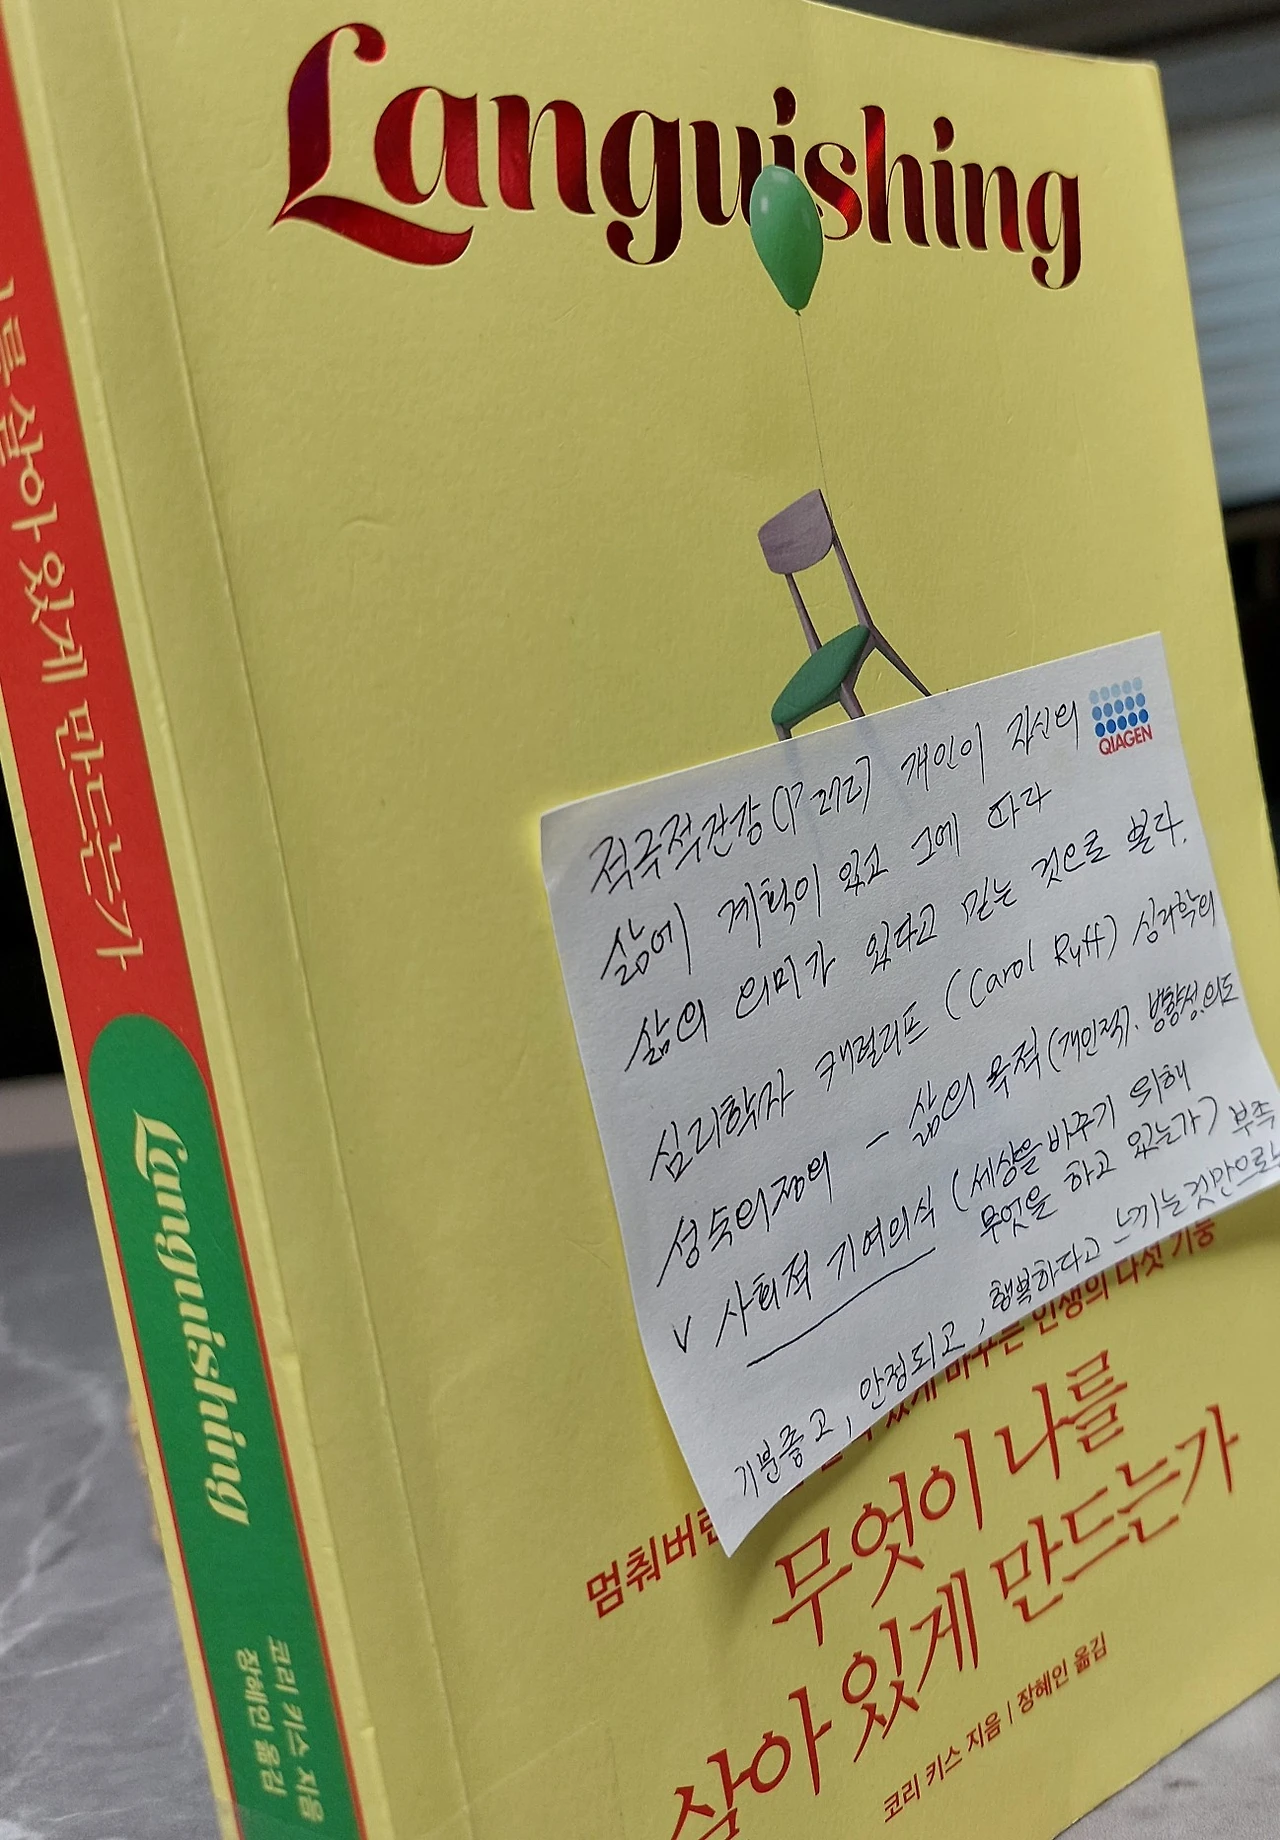 Languishing
QIAGEN
적극적건강(P 272) 개인이 자신의
삶에 계획이 있고 그에 따라
삶의 의미가 있다고 믿는 것으로 본다.
심리학자 캐럴리프 (Carol Ryff) 심리학의
성숙의정의 - 삶의 목적(개인적). 방향성.의도
v 사회적 기여의식 (세상을바꾸기 위해
무엇을 하고 있는가) 부족
기분좋고, 안정되고, 행복하다고 느끼는것만으로는
바꾸는 인생의 다섯 기능
멈춰버린
무엇이 나를
살아 있게 만드는가
코리 키스 지음 | 장혜인 옮김
를 살아 있게 만드는가
Languishing
코리 키스 지음
장혜인 옮김